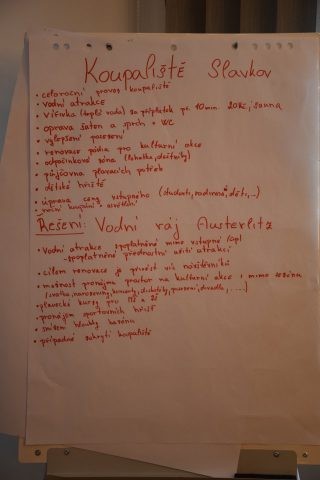 Koupaliště Slavkov
• celoroční provoz koupaliště
• vodní atrakce
• vířivka (teplá voda) za příplatek př. 10min. 20Kč, sauna
• oprava šaten a sprch + WC
• vylepšení posezení
• renovace pódia pro kulturní akce
• odpočinková zóna (lehátka, deštníky)
• půjčovna plaveckých potřeb
• dětské hřiště
• úprava ceny vstupného (studenti, rodinné, děti,...)
• noční koupání a osvětlení
Řešení: Vodní ráj Austerlitz
• vodní atrakce zpoplatněné mimo vstupné
- zpoplatněné přednostní užití atrakcí
• cílem renovace je přivést víc návštěvníků
• možnost pronájmu prostor na kulturní akce i mimo sezónu
(svatba, narozeniny, koncerty, diskotéky, posezení, divadla, ....)
• plavecké kurzy pro MŠ a ZŠ
• pronájem sportovních hřišť
• snížení hloubky bazénu
• případné zakrytí koupaliště